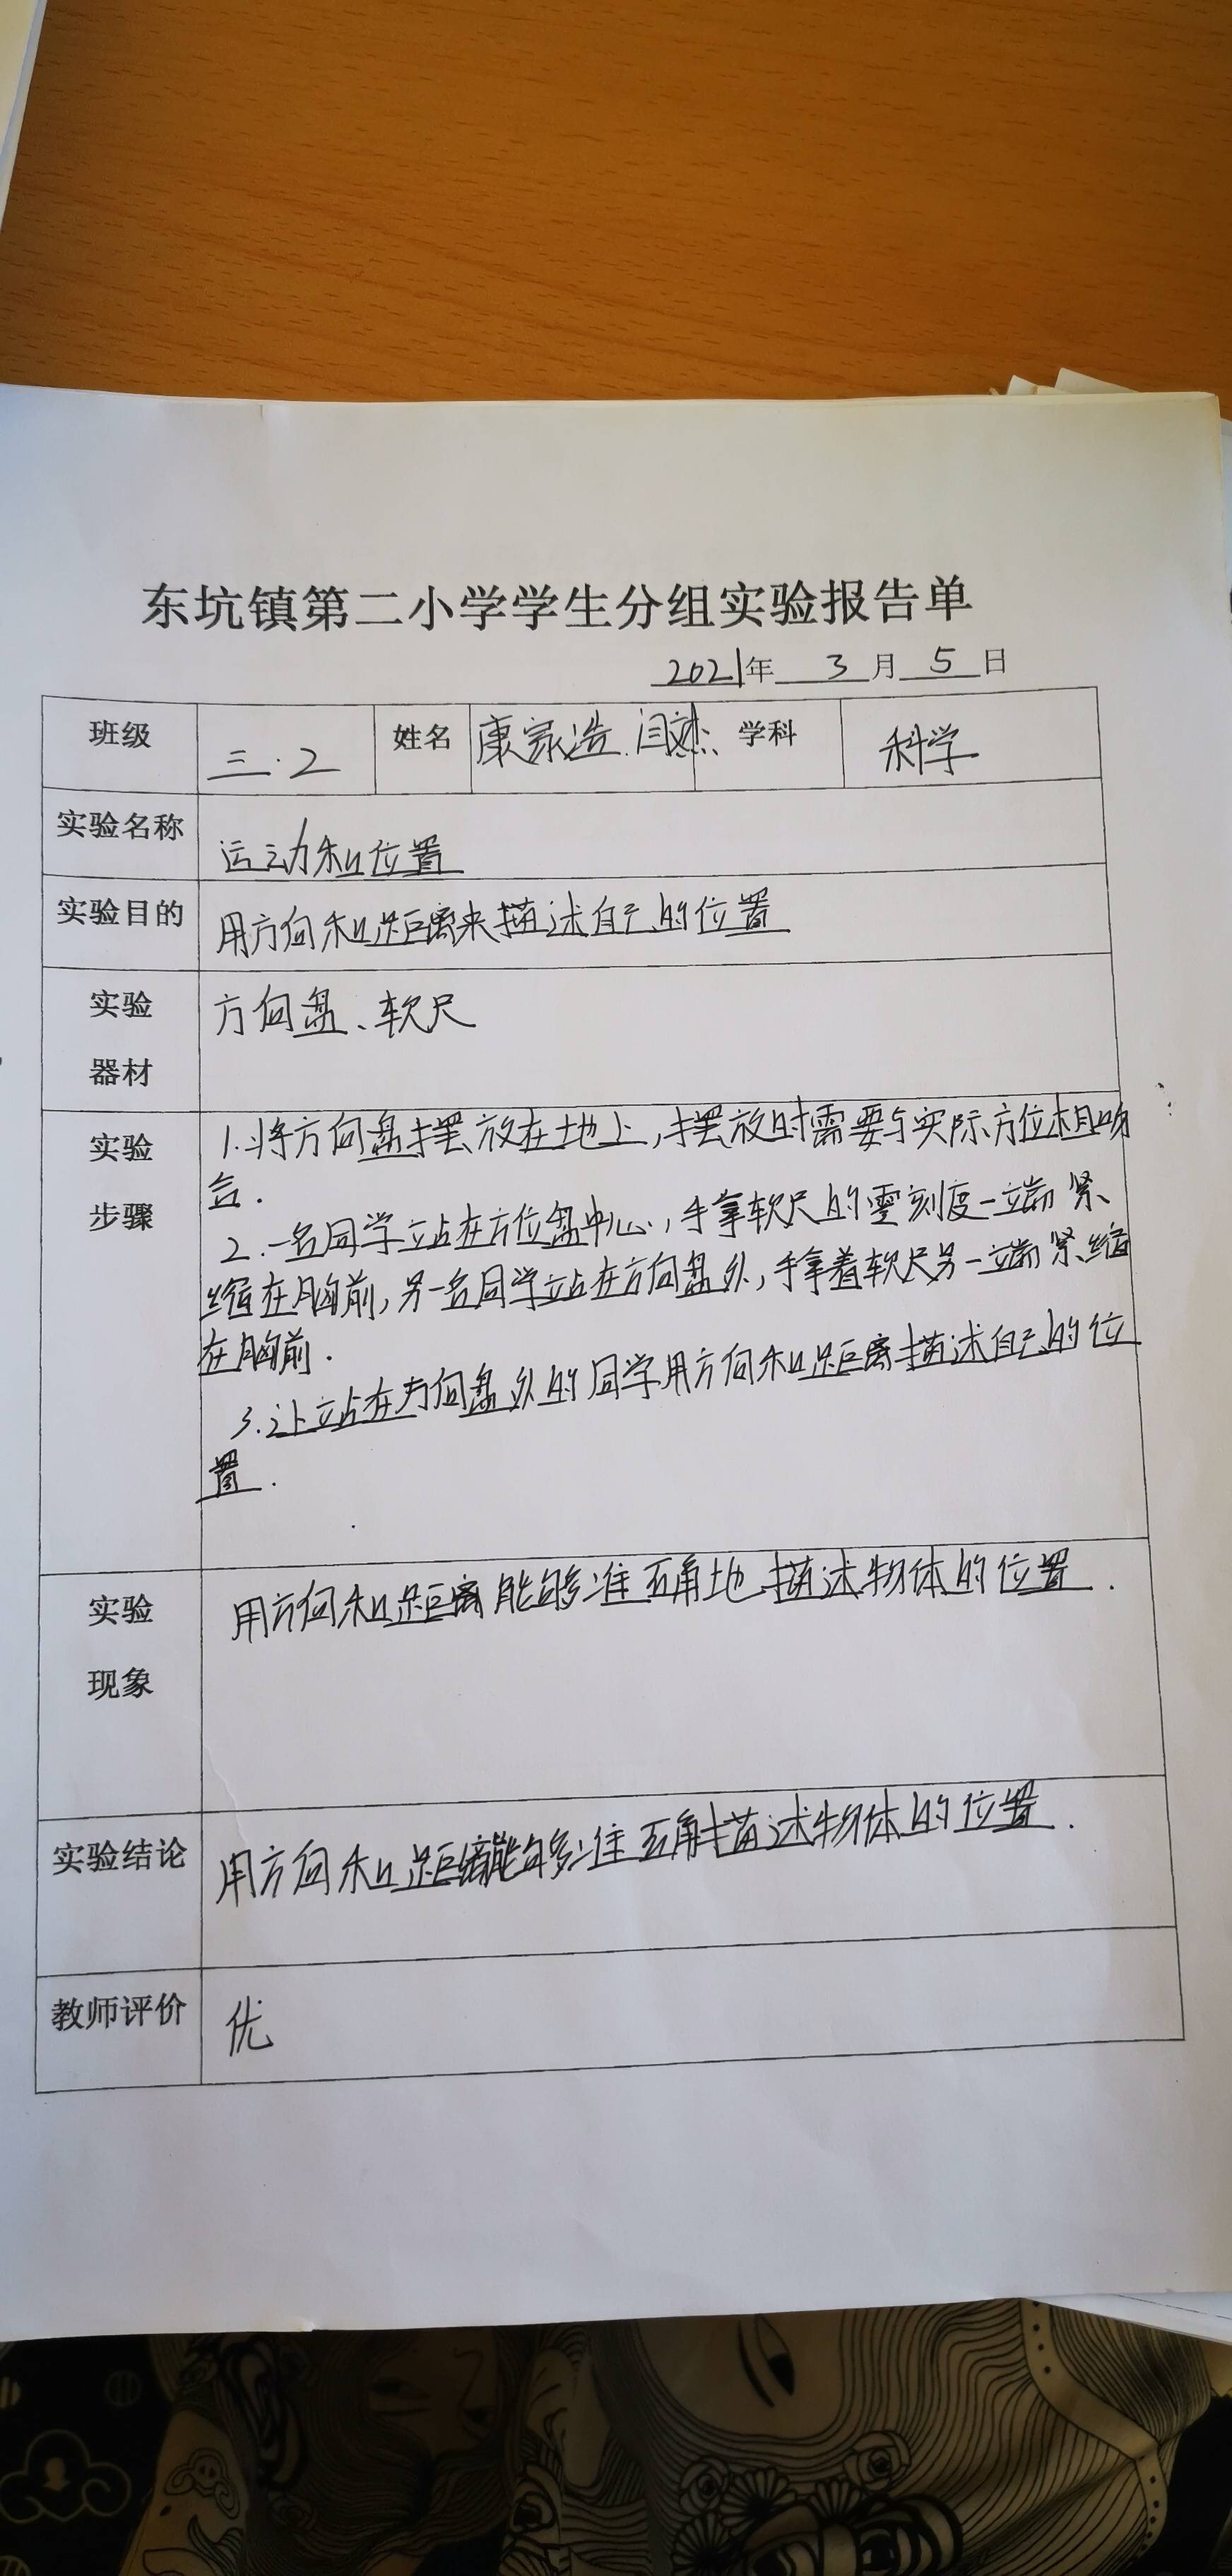 东坑镇第二小学学生分组实验报告单
2021年 3 月 5 日
班级 三.2 姓名 康家浩.闫杰 学科 科学
实验名称 运动和位置
实验目的 用方向和距离来描述自己的位置
实验 方向盘、软尺
器材
实验 1.将方向盘摆放在地上,摆放时需要与实际方位相吻
合.
步骤 2.一名同学站在方位盘中心,手拿软尺的零刻度一端紧
缩在胸前,另一名同学站在方向盘外,手拿着软尺另一端紧缩
在胸前.
3.让站在方向盘外的同学用方向和距离描述自己的位
置.
实验 用方向和距离能够准确地描述物体的位置.
现象
实验结论 用方向和距离能够准确描述物体的位置.
教师评价 优